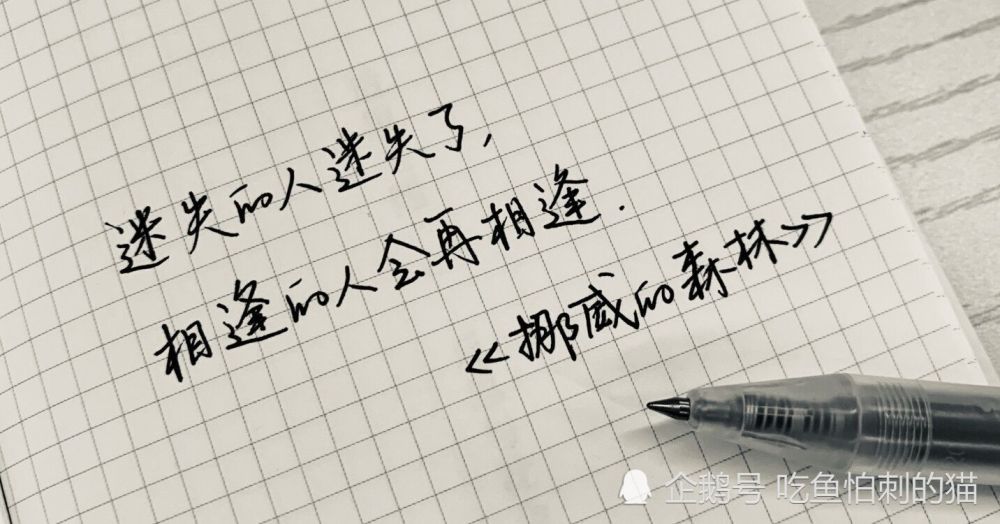 迷失的人迷失了,
相逢的人会再相逢.
《挪威的森林》
企鹅号 吃鱼怕刺的猫